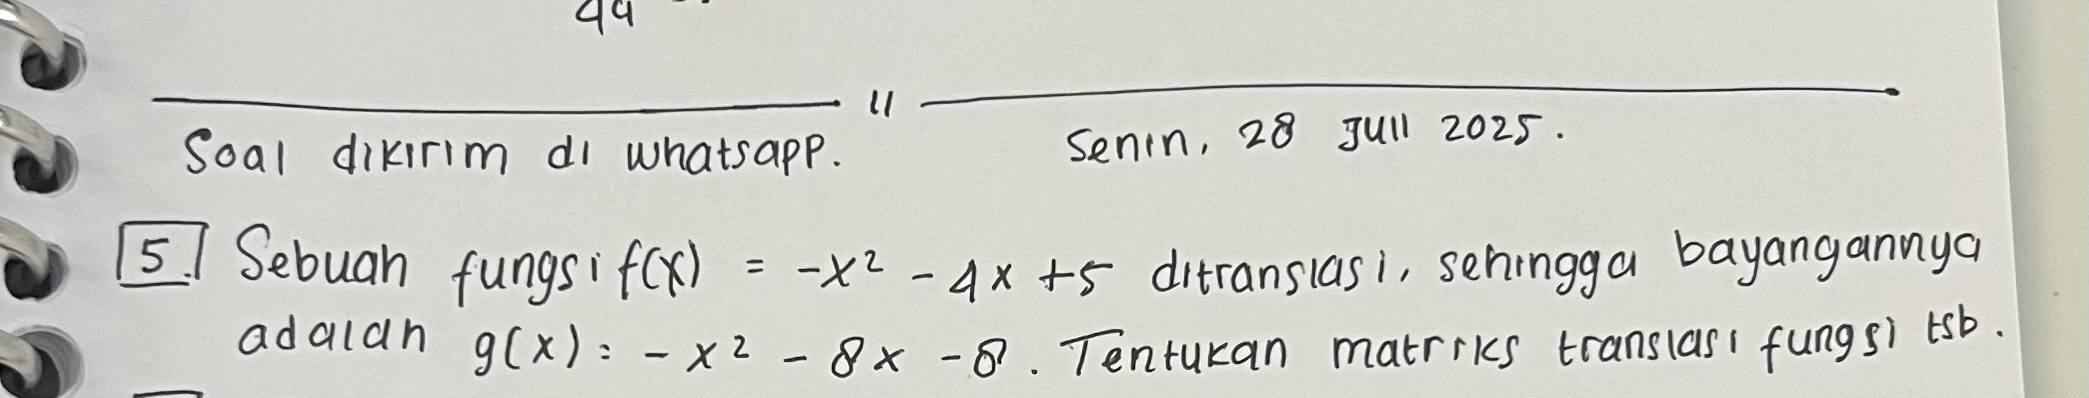 49
"
Soal dikirim di whatsapp. Senin, 28 Juli 2025.
5. Sebuah fungsi f(x) = -x² - 4x +5 ditranslasi, sehingga bayangannya
adalah g(x) = -x² - 8x -8. Tentukan matriks translasi fungsi tsb.